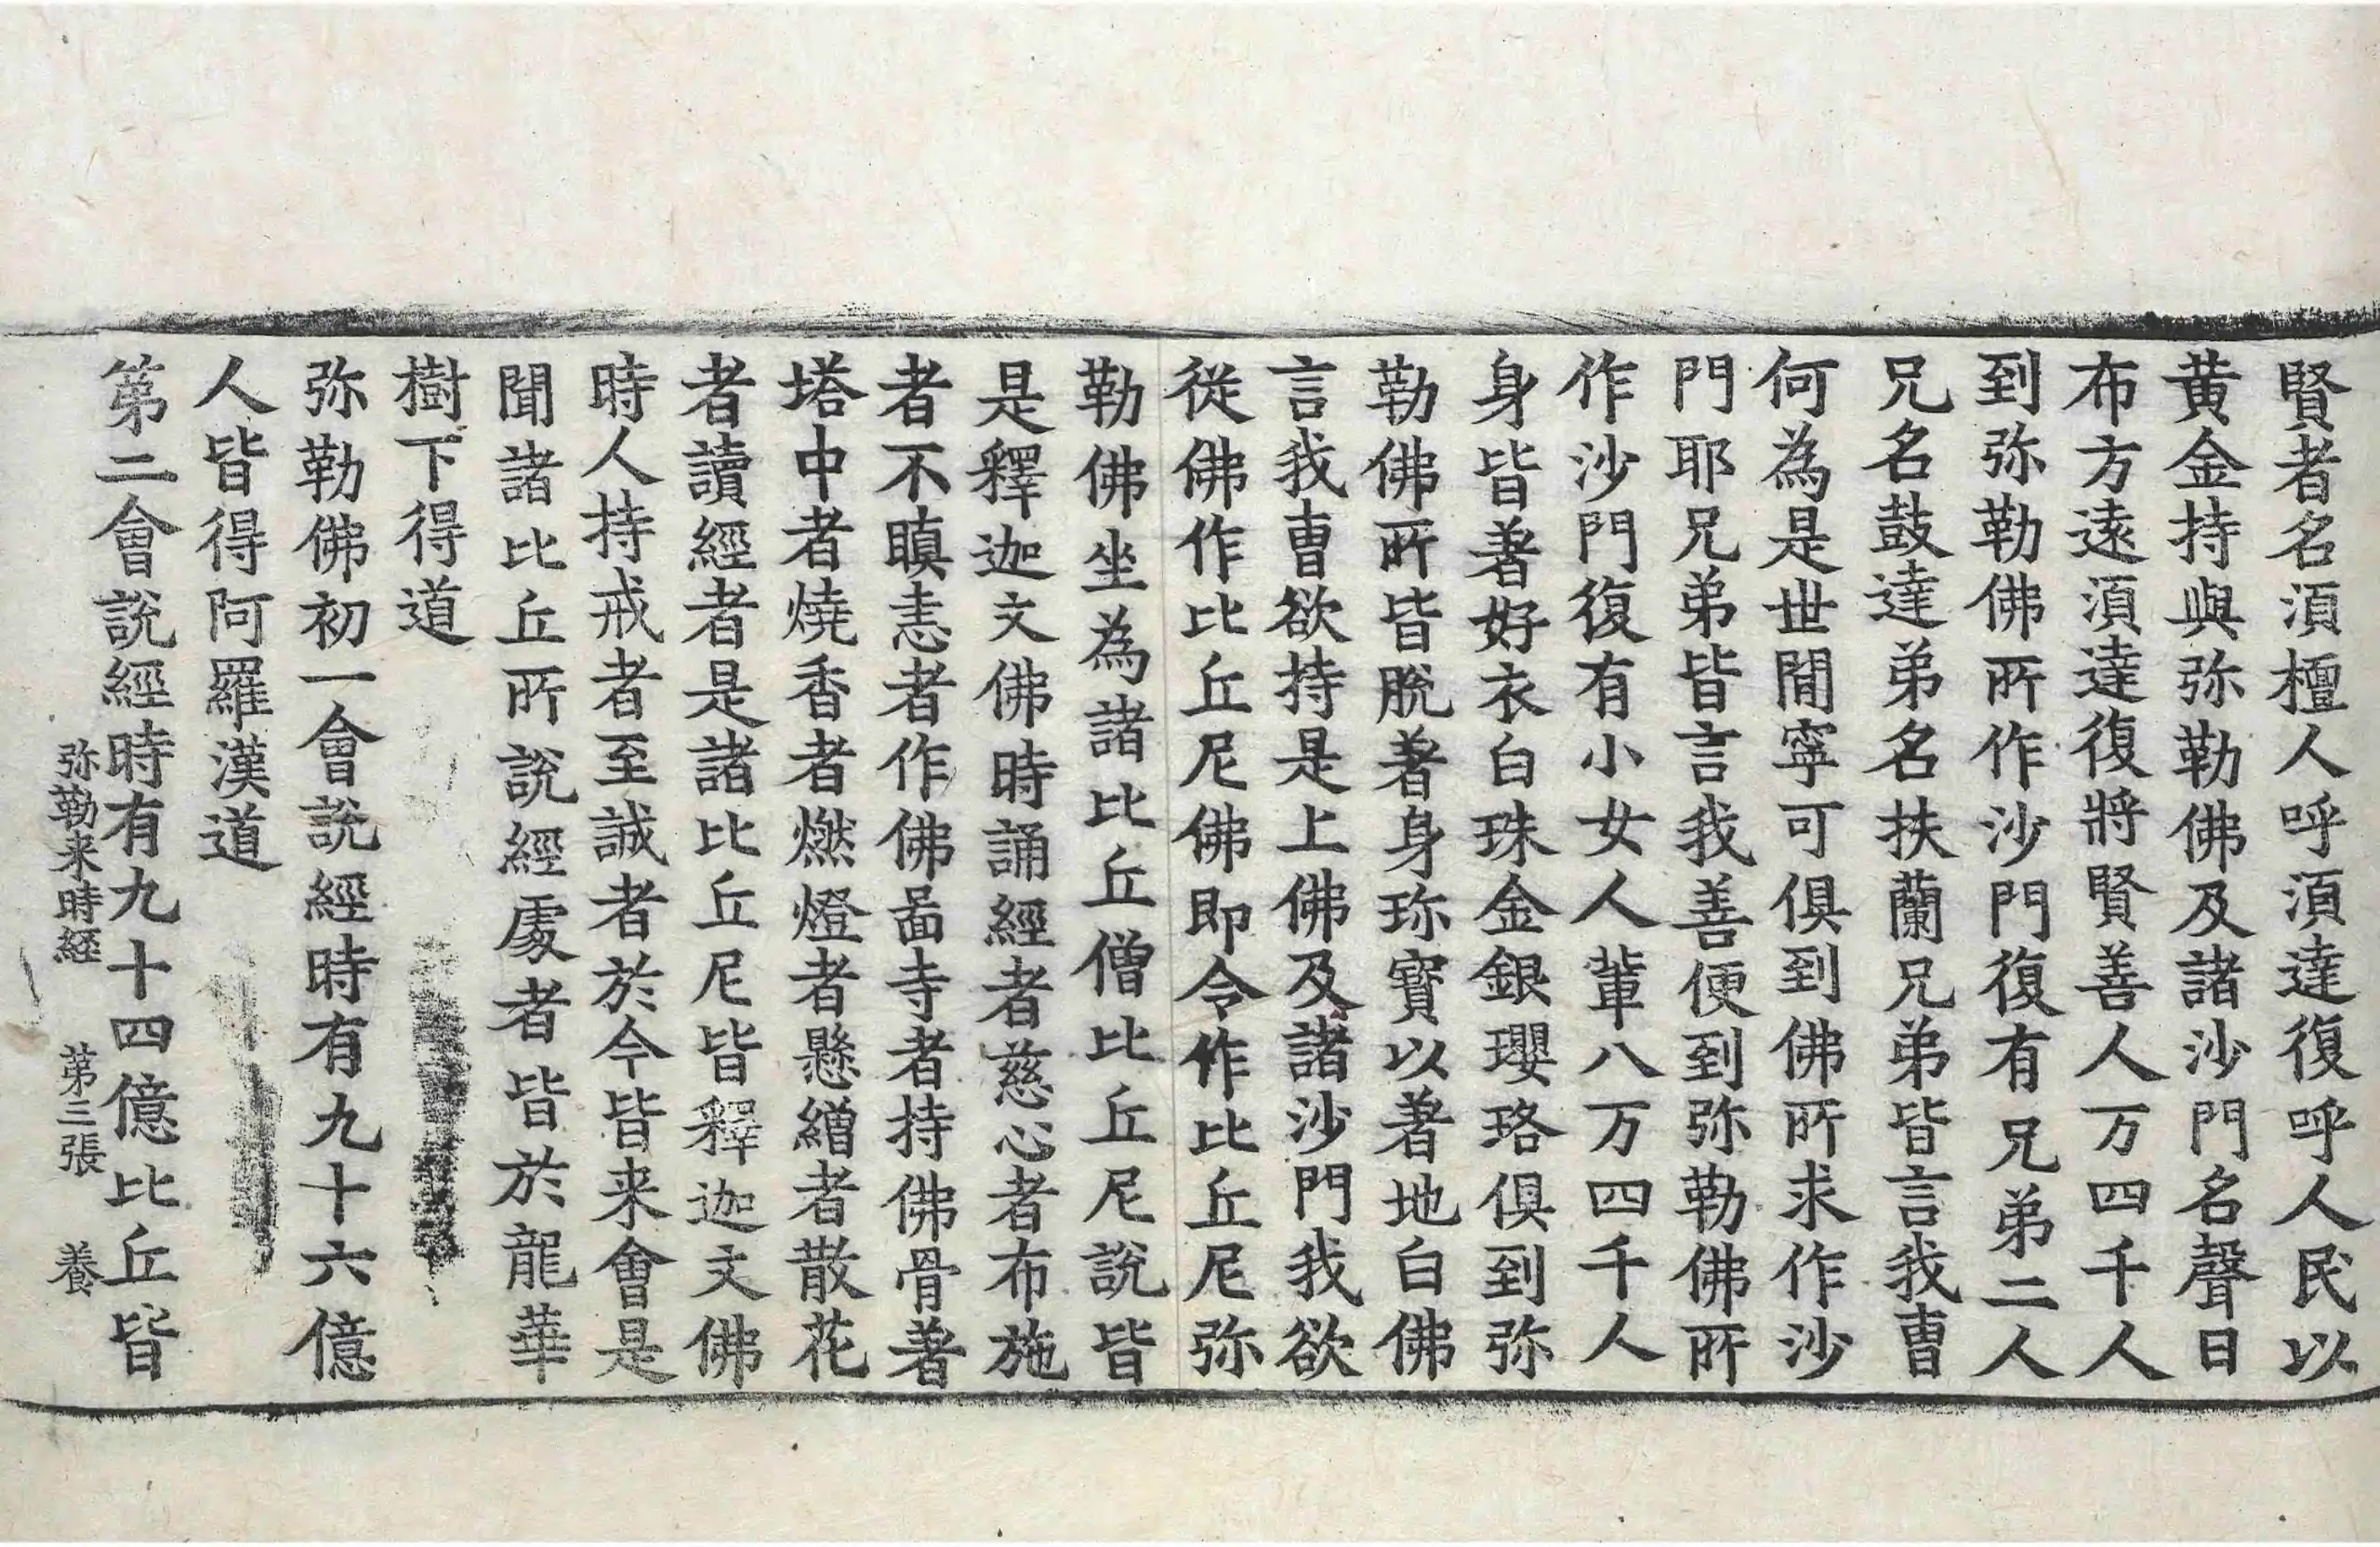 賢者名湏檀人呼湏達復呼人民以
黄金持與弥勒佛及諸沙門名聲日
布方遠湏達復將賢善人万四千人
到弥勒佛所作沙門復有兄弟二人
兄名鼓達弟名扶蘭兄弟皆言我曺
何為是世閒寧可俱到佛所求作沙
門耶兄弟皆言我善便到弥勒佛所
作沙門復有小女人輩八万四千人
身皆著好衣白珠金銀瓔珞俱到弥
勒佛所皆脫著身珎寶以著地白佛
言我曺欲持是上佛及諸沙門我欲
從佛作比丘尼佛即令作比丘尼弥
勒佛坐為諸比丘僧比丘尼說皆
是釋迦文佛時誦經者慈心者布施
者不瞋恚者作佛啚寺者持佛骨著
塔中者燒香者燃燈者懸繒者散花
者讀經者是諸比丘尼皆釋迦文佛
時人持戒者至誠者於今皆来會是
聞諸比丘所說經處者皆於龍華
樹下得道
弥勒佛初一會說經時有九十六億
人皆得阿羅漢道
第二會說經時有九十四億比丘皆
弥勒来時經 第三張 養